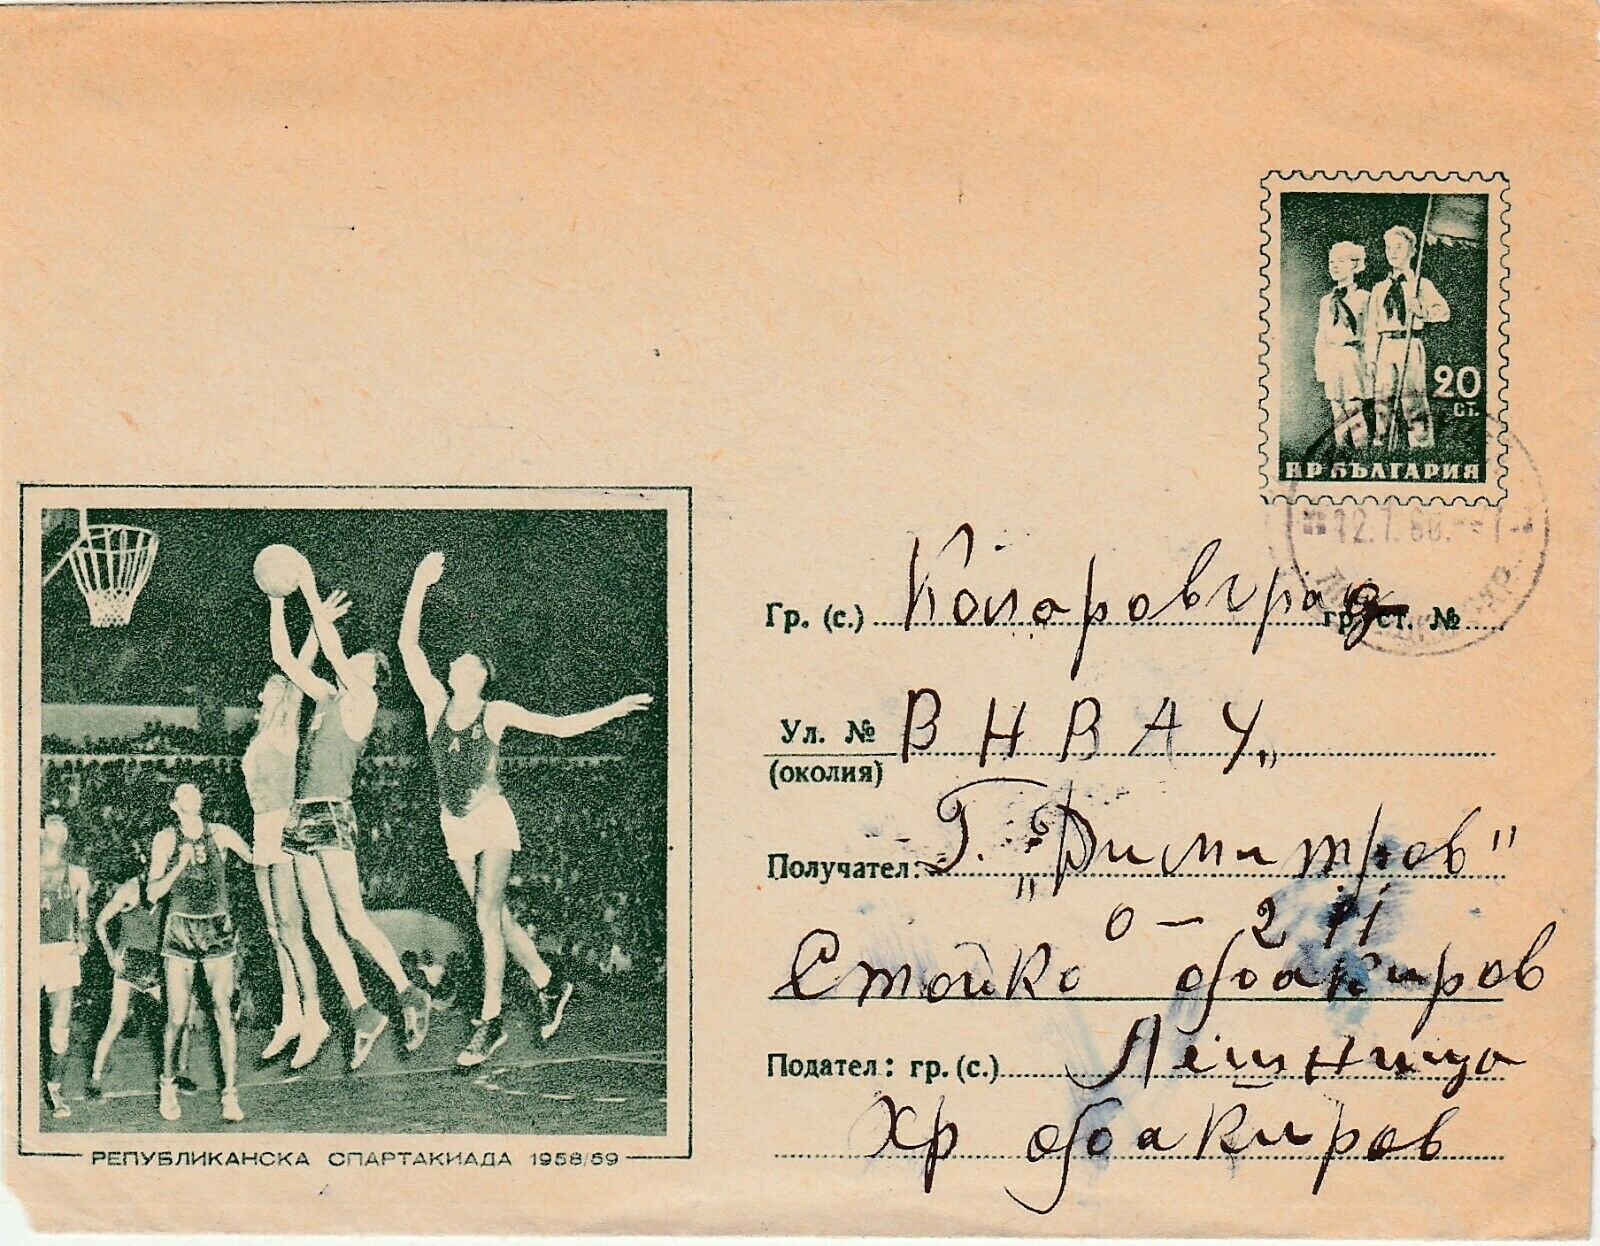 20
СТ.
НР БЪЛГАРИЯ
12.7.60.
Гр. (с.) Коларовград гр. ст. №
Ул. № В Н В А У „
(околия)
Получател: Г. „Димитров"
0 - 2 11
Стойко Обакиров
Подател: гр. (с.) Лешница
Хр Обакиров
РЕПУБЛИКАНСКА СПАРТАКИАДА 1958/59